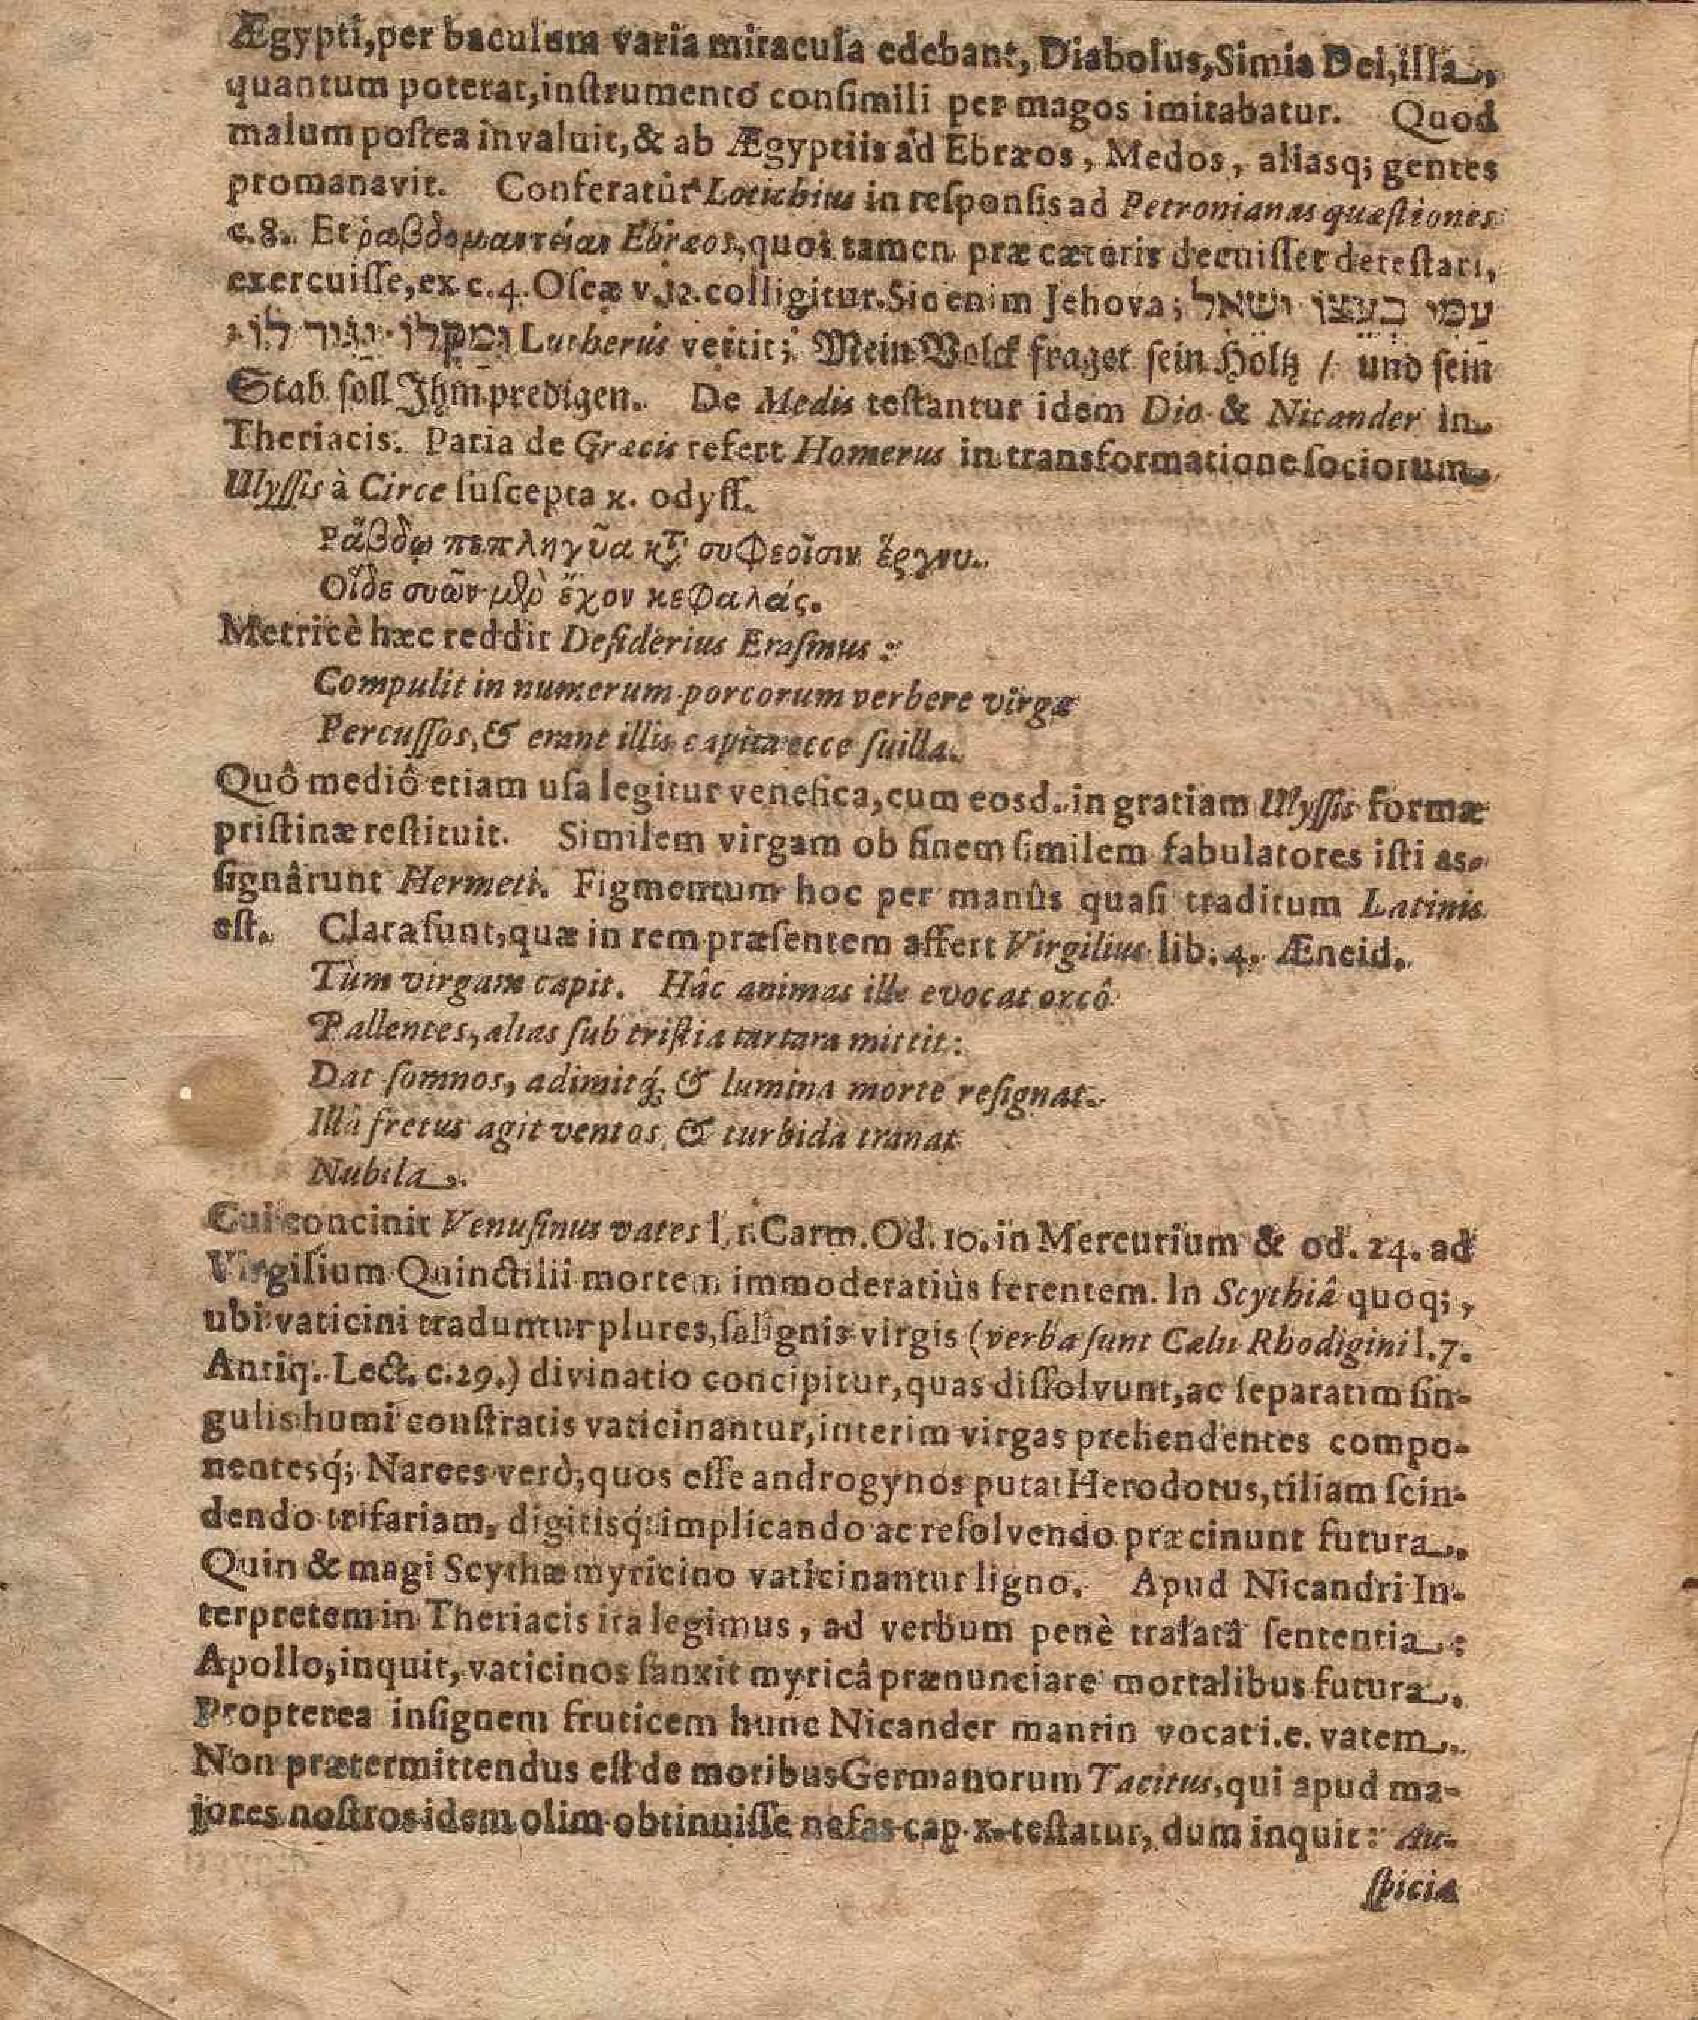 Ægypti, per baculum varia miracula edebant, Diabolus, Simia Dei, illa,
quantum poterat, inſtrumentô conſimili per magos imitabatur. Quod
malum poſtea invaluit, & ab Ægyptiis ad Ebræos, Medos, aliasq; gentes
promanavit. Conferatur Lotichius in reſponſis ad Petronianas quæſtiones
c. 8. Et ῥαβδομαντείαν Ebræos, quos tamen præ cæteris decuiſſet deteſtari,
exercuiſſe, ex c. 4. Oſeæ v. 12. colligitur. Sic enim Jehova; עמי בעצו ישאל
ומקלו יגיד לו: Lutherus vertit; Mein Volck fraget ſein Höltz / und ſein
Stab ſoll Jhm predigen. De Medis teſtantur idem Dio & Nicander in
Theriacis. Paria de Græcis refert Homerus in transformatione ſociorum
Ulyſſis à Circe ſuſcepta κ. odyſſ.
Ράβδῳ πεπληγῦα κτ̀ συφεοῖσιν ἔεργνυ.
Οἵδε συῶν μὲν ἔχον κεφαλάς.
Metricè hæc reddit Deſiderius Eraſmus:
Compulit in numerum porcorum verbere virgæ
Percuſſos, & erant illis capita ecce ſuilla.
Quô mediô etiam uſa legitur venefica, cum eosd. in gratiam Ulyſſis formæ
priſtinæ reſtituit. Similem virgam ob finem ſimilem fabulatores iſti as-
ſignârunt Hermeti. Figmentum hoc per manûs quaſi traditum Latinis
eſt. Clara ſunt, quæ in rem præſentem affert Virgilius lib. 4. Æneid.
Tùm virgam capit. Hâc animas ille evocat orcô
Pallentes, alias ſub triſtia tartara mittit:
Dat ſomnos, adimitq́; & lumina morte reſignat.
Illâ fretus agit ventos, & turbida tranat
Nubila.
Cui concinit Venuſinus vates l. 1. Carm. Od. 10. in Mercurium & od. 24. ad
Virgilium Quinctilii mortem immoderatiùs ferentem. In Scythiâ quoq;,
ubi vaticini traduntur plures, ſalignis virgis (verba ſunt Cælii Rhodigini l. 7.
Antiq. Lect. c. 29.) divinatio concipitur, quas diſſolvunt, ac ſeparatim ſin-
gulis humi conſtratis vaticinantur, interim virgas prehendentes compo-
nentesq́; Narees verò, quos eſſe androgynos putat Herodotus, tiliam ſcin-
dendo trifariam, digitisq́; implicando ac reſolvendo præcinunt futura.
Quin & magi Scythæ myricino vaticinantur ligno. Apud Nicandri In-
terpretem in Theriacis ita legimus, ad verbum penè tralatâ ſententia:
Apollo, inquit, vaticinos ſanxit myricâ prænunciare mortalibus futura.
Propterea inſignem fruticem hunc Nicander mantin vocat i.e. vatem.
Non prætermittendus eſt de moribus Germanorum Tacitus, qui apud ma-
jores noſtros idem olim obtinuiſſe nefas cap. x. teſtatur, dum inquit: Au-
ſpicia